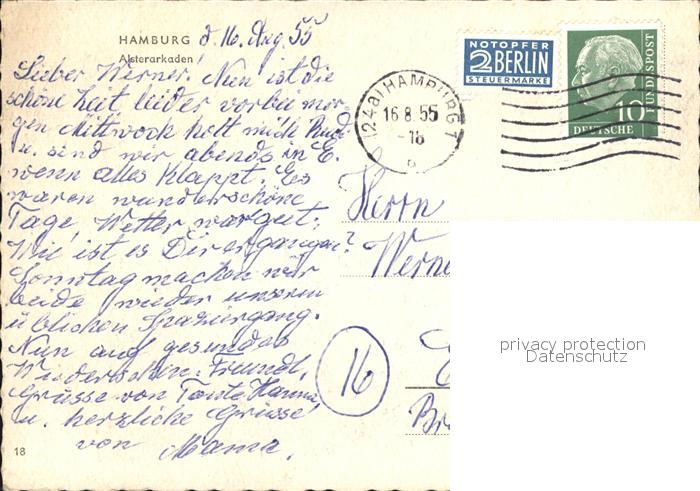 HAMBURG d. 16. Aug 55
Alsterarkaden
Lieber Werner! Nun ist die
schöne Zeit leider vorbei mor-
gen Mittwoch holt mich Rudi
u. sind wir abends in E.
wenn alles klappt. Es
waren wunderschöne
Tage, Wetter war gut,
Wie ist es Dir ergangen?
Sonntag machen wir
beide wieder unseren
üblichen Spaziergang.
Nun auf gesundes
Wiedersehen. Freundl.
Grüsse von Tante Hanna,
u. herzliche Grüsse
von Mama.
18
NOTOPFER
2 BERLIN
STEUERMARKE
(24a) HAMBURG 1
16.8.55
-18
10
DEUTSCHE
BUNDESPOST
Herrn
Werne
16
E
Br
privacy protection
Datenschutz